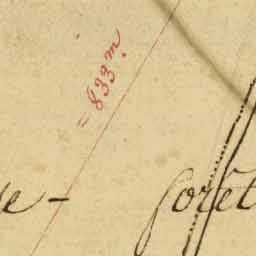 = 833 m.
forêt